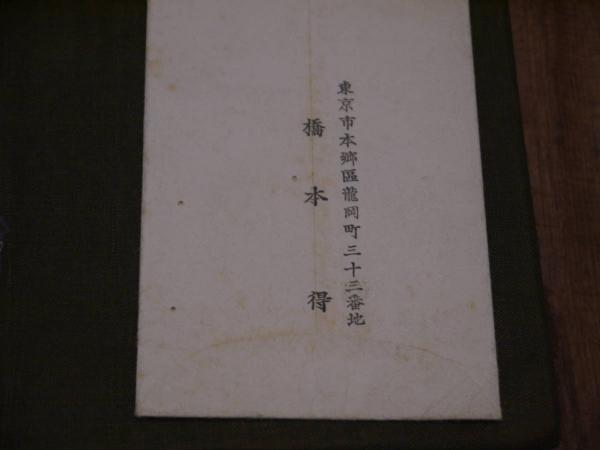 東京市本郷區龍岡町三十三番地
橋本得